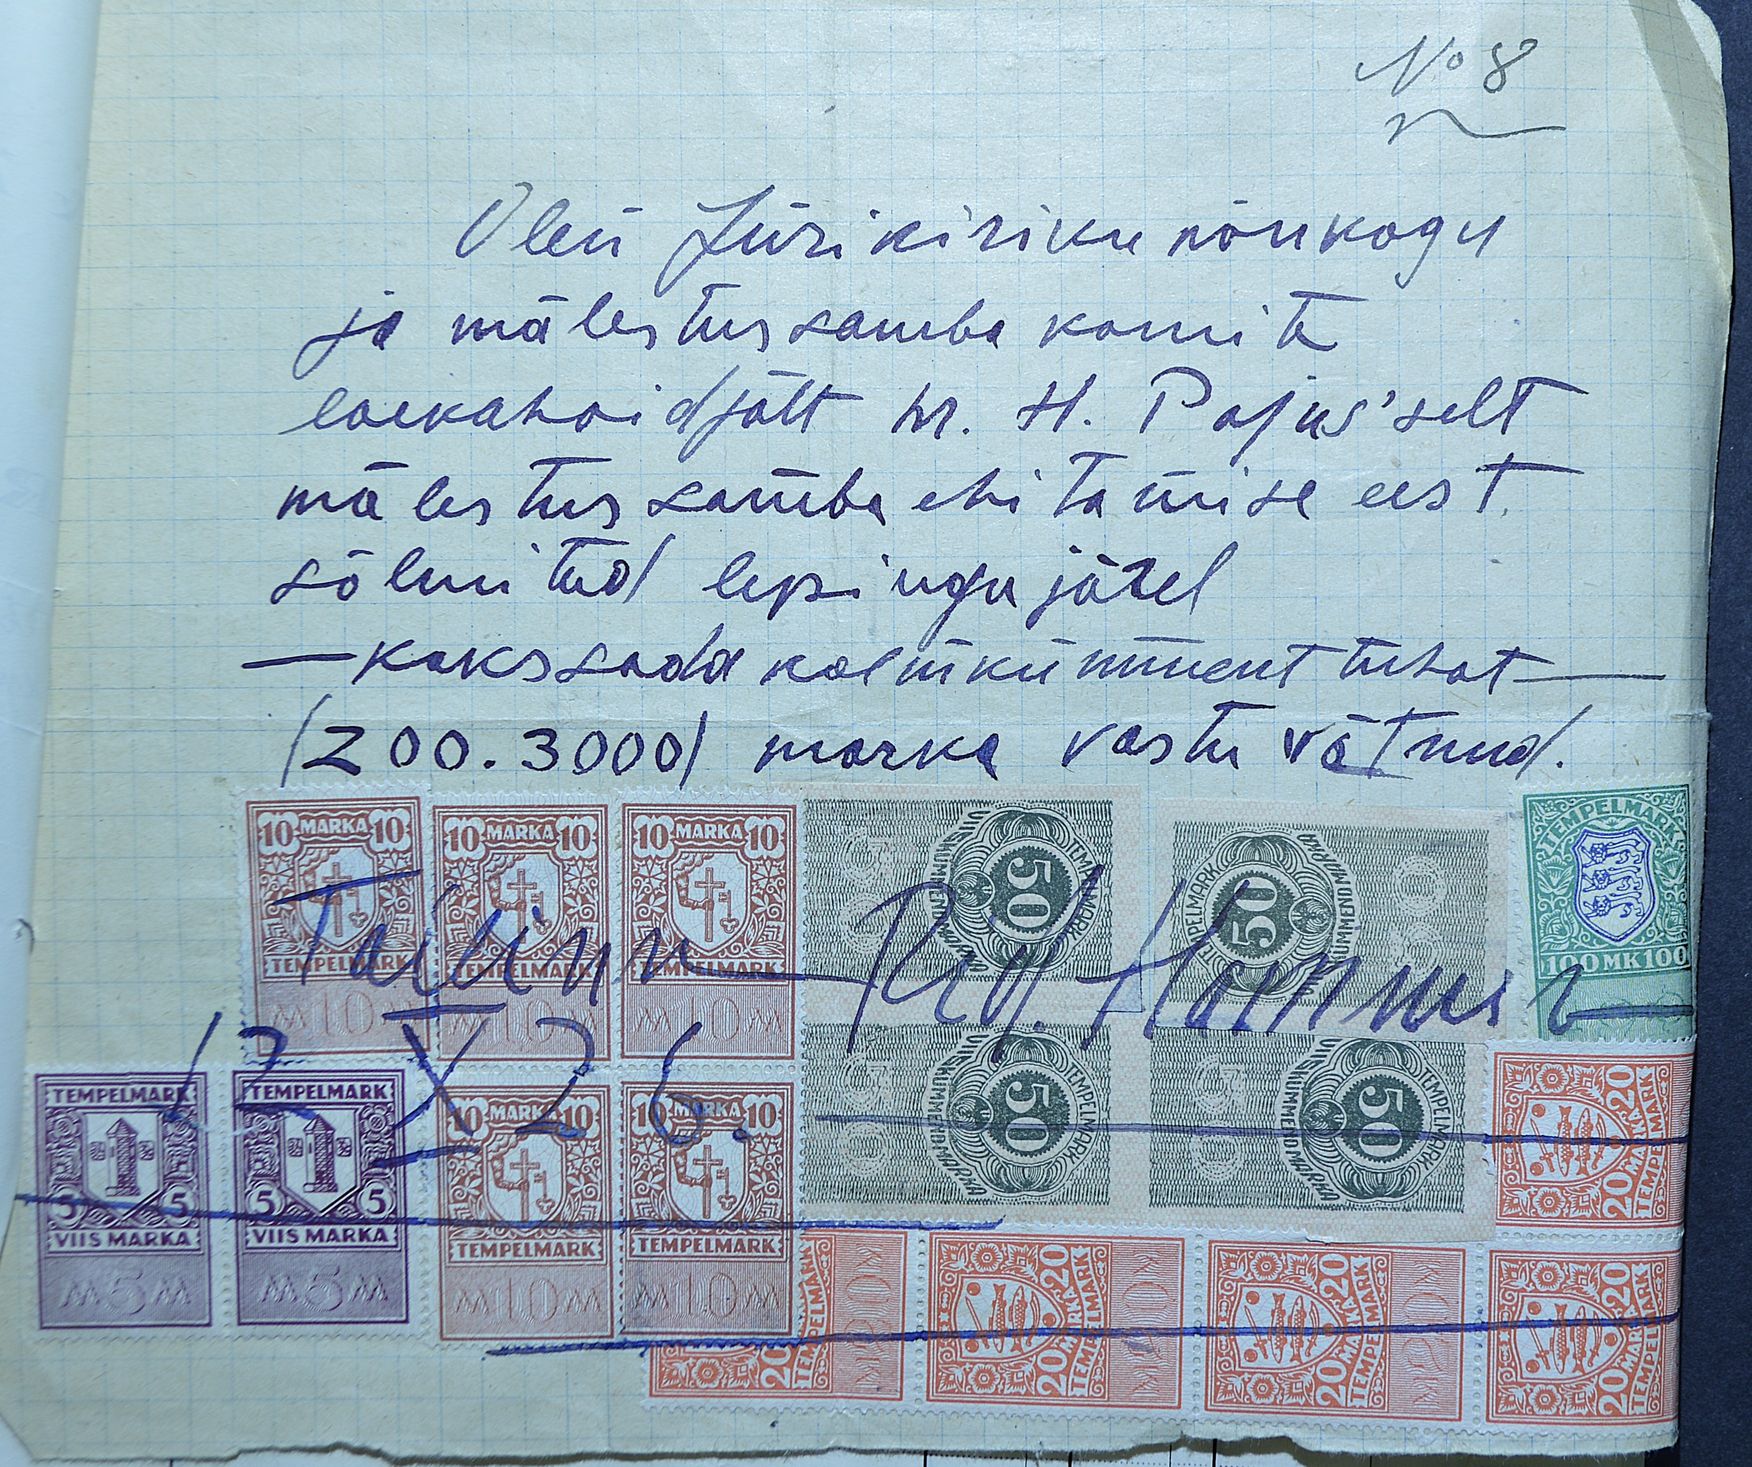 No 8
Olen Jüri kiriku nõukogu
ja mälestussamba komite
laekahoidjält hr. H. Pajus'selt
mälestussamba ehitamise eest
sõlmitud lepingu järel
—kakssada kolmkümment tuhat—
/200.3000/ marka vastu võtnud.
10 MARKA 10
TEMPELMARK
10
10 MARKA 10
TEMPELMARK
10
10 MARKA 10
TEMPELMARK
10
TEMPELMARK
50
VIISKÜMMEND MARKA
TEMPELMARK
50
VIISKÜMMEND MARKA
TEMPELMARK
100 MK 100
Tallinn Rud. Hammer
12 X 26.
TEMPELMARK
5 5
VIIS MARKA
5
TEMPELMARK
5 5
VIIS MARKA
5
10 MARKA 10
TEMPELMARK
10
10 MARKA 10
TEMPELMARK
10
TEMPELMARK
50
VIISKÜMMEND MARKA
TEMPELMARK
50
VIISKÜMMEND MARKA
20 MARKA 20
TEMPELMARK
20
TEMPELMARK
20 MARKA 20
TEMPELMARK
20 MARKA 20
TEMPELMARK
20 MARKA 20
TEMPELMARK